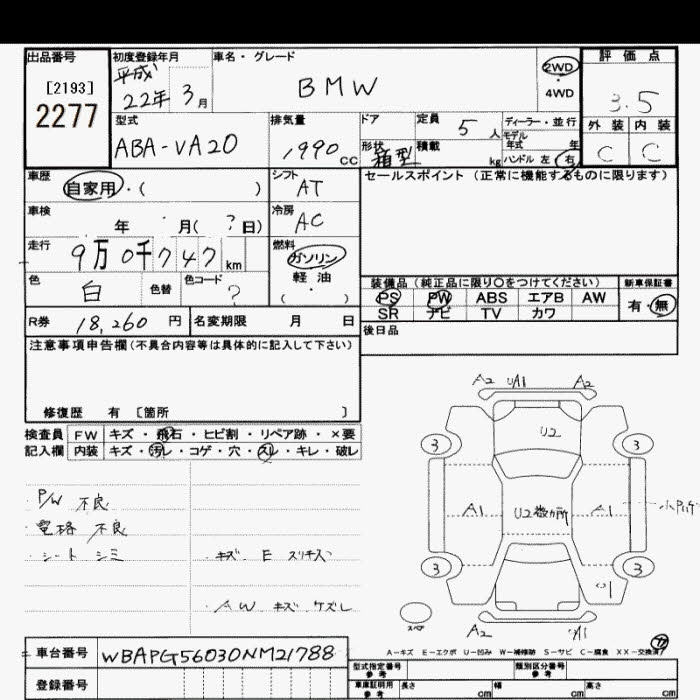 出品番号
[2193]
2277
初度登録年月
平成
22年 3月
車名・グレード
BMW
2WD
・
4WD
評価点
3.5
外装 内装
C C
型式
ABA-VA20
排気量
1990cc
ドア
形状
箱型
定員
5人
積載
kg
ディーラー・並行
モデル
年式 年
ハンドル 左 右
車歴
自家用・( )
シフト
AT
車検
年 月(?日)
冷房
AC
走行
9万0千747km
燃料
ガソリン
軽油
(・)
色
白
色替
色コード
?
R券 18,260円
名変期限 月 日
セールスポイント (正常に機能するものに限ります)
装備品(純正品に限り○をつけてください)
PS PW ABS エアB AW
SR ナビ TV カワ
新車保証書
有・無
後日品
注意事項申告欄(不具合内容等は具体的に記入して下さい)
修復歴 有 [箇所 ]
検査員
記入欄
FW キズ・飛石・ヒビ割・リペア跡・×要
内装 キズ・汚レ・コゲ・穴・スレ・キレ・破レ
P/W 不良
電格 不良
シート シミ
キズ E スリキズ
AW キズ ケズレ
A2 UA1 A2
U2
3 3
A1 U2数ヵ所 A1
3 3
U1
スペア
A2 A1
A-キズ E-エクボ U-凹み W-補修跡 S-サビ C-腐食 XX-交換済
車台番号 WBAPG56030NM21788
登録番号
型式指定番号
参考
類別区分番号
参考
車庫証明用
参考
長さ cm 幅 cm 高さ cm